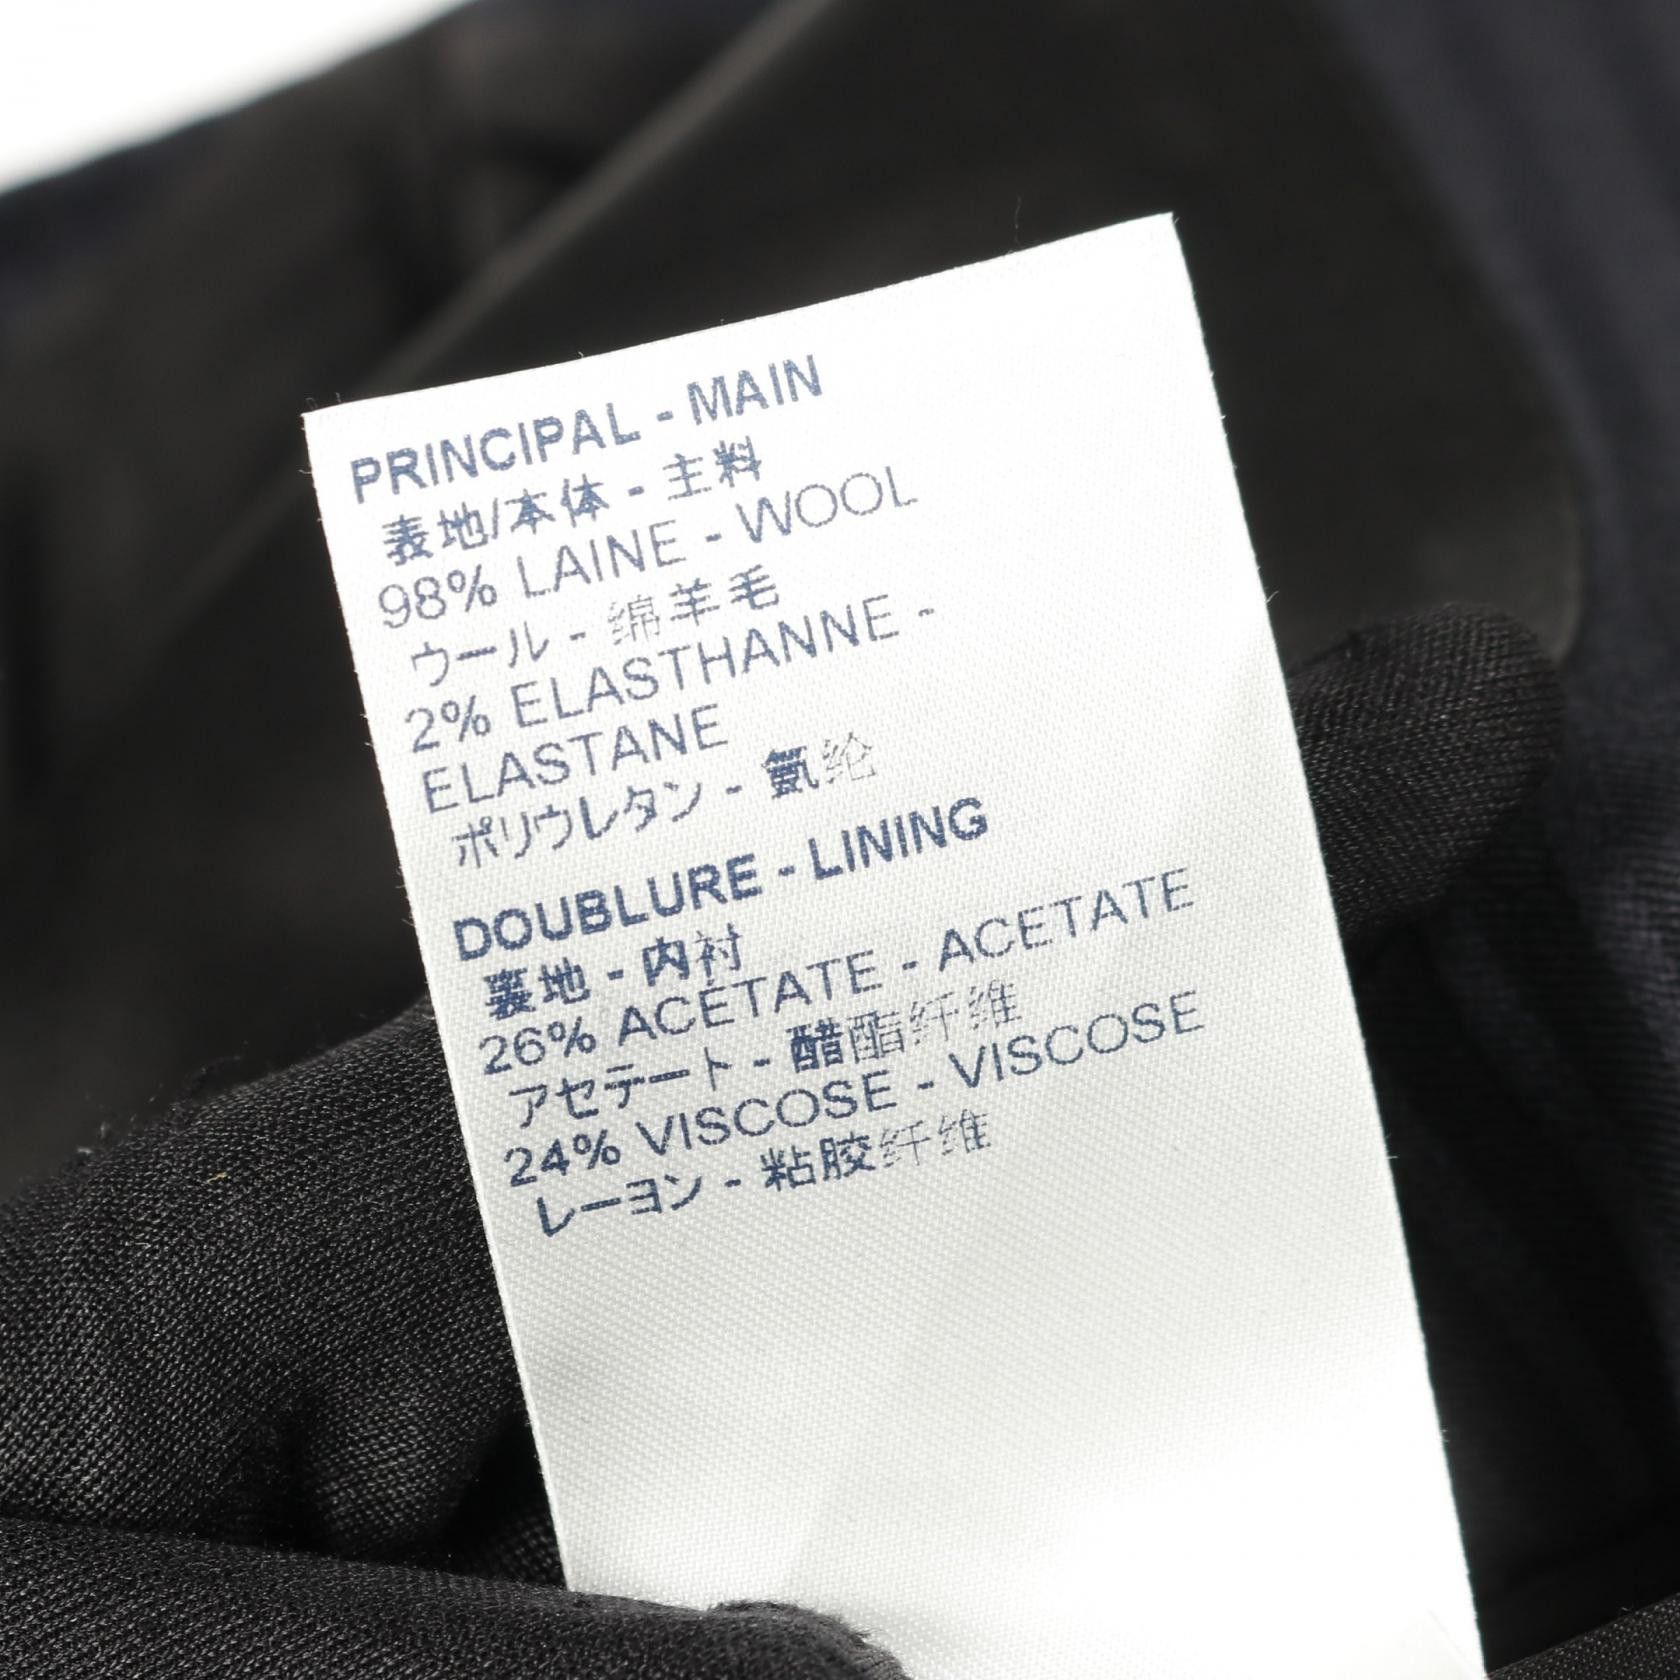 PRINCIPAL - MAIN
表地/本体 - 主料
98% LAINE - WOOL
ウール - 绵羊毛
2% ELASTHANNE -
ELASTANE
ポリウレタン - 氨纶
DOUBLURE - LINING
裏地 - 内衬
26% ACÉTATE - ACETATE
アセテート - 醋酯纤维
24% VISCOSE - VISCOSE
レーヨン - 粘胶纤维